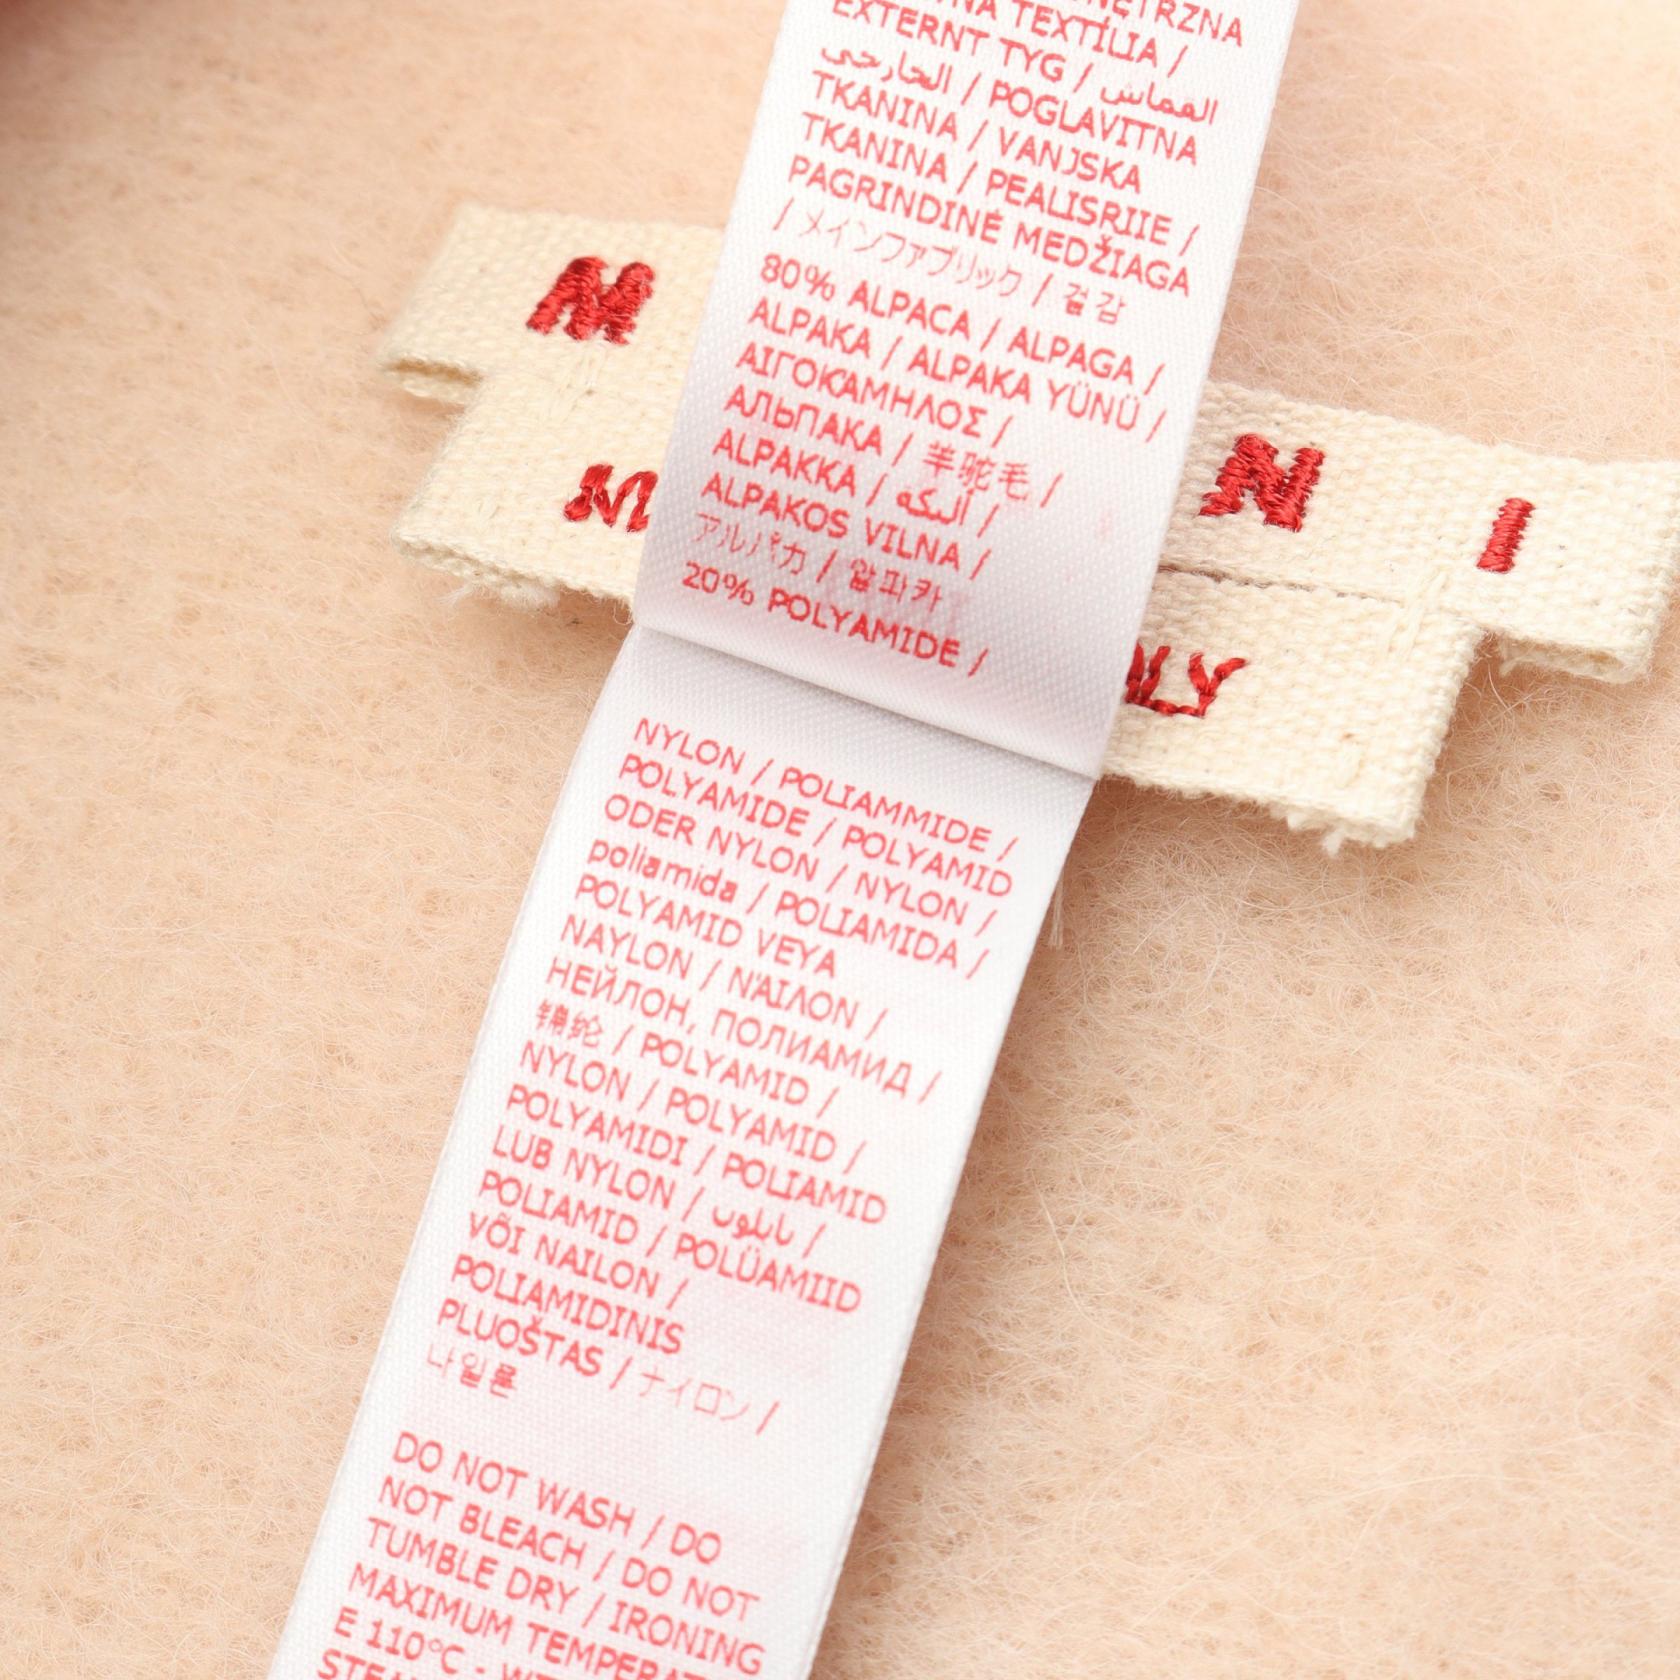 TEXTÍLIA /
EXTERNT TYG / القماش
الخارجي / POGLAVITNA
TKANINA / VANJSKA
TKANINA / PEALISRIIE /
PAGRINDINĖ MEDŽIAGA
/ メインファブリック / 겉감
80% ALPACA / ALPAGA /
ALPAKA / ALPAKA YÜNÜ /
ΑΙΓΟΚΑΜΗΛΟΣ /
АЛЬПАКА / 羊驼毛 /
ALPAKKA / البكة /
ALPAKOS VILNA /
アルパカ / 알파카
20% POLYAMIDE /
NYLON / POLIAMMIDE /
POLYAMIDE / POLYAMID
ODER NYLON / NYLON /
poliamida / POLIAMIDA /
POLYAMID VEYA
NAYLON / ΝΆΙΛΟΝ /
НЕЙЛОН, ПОЛИАМИД /
锦纶 / POLYAMID /
NYLON / POLYAMID /
POLYAMIDI / POLIAMID
LUB NYLON / نايلون /
POLIAMID / POLÜAMIID
VÕI NAILON /
POLIAMIDINIS
PLUOŠTAS / ナイロン /
나일론
DO NOT WASH / DO
NOT BLEACH / DO NOT
TUMBLE DRY / IRONING
MAXIMUM
E 110°C -
M
N I